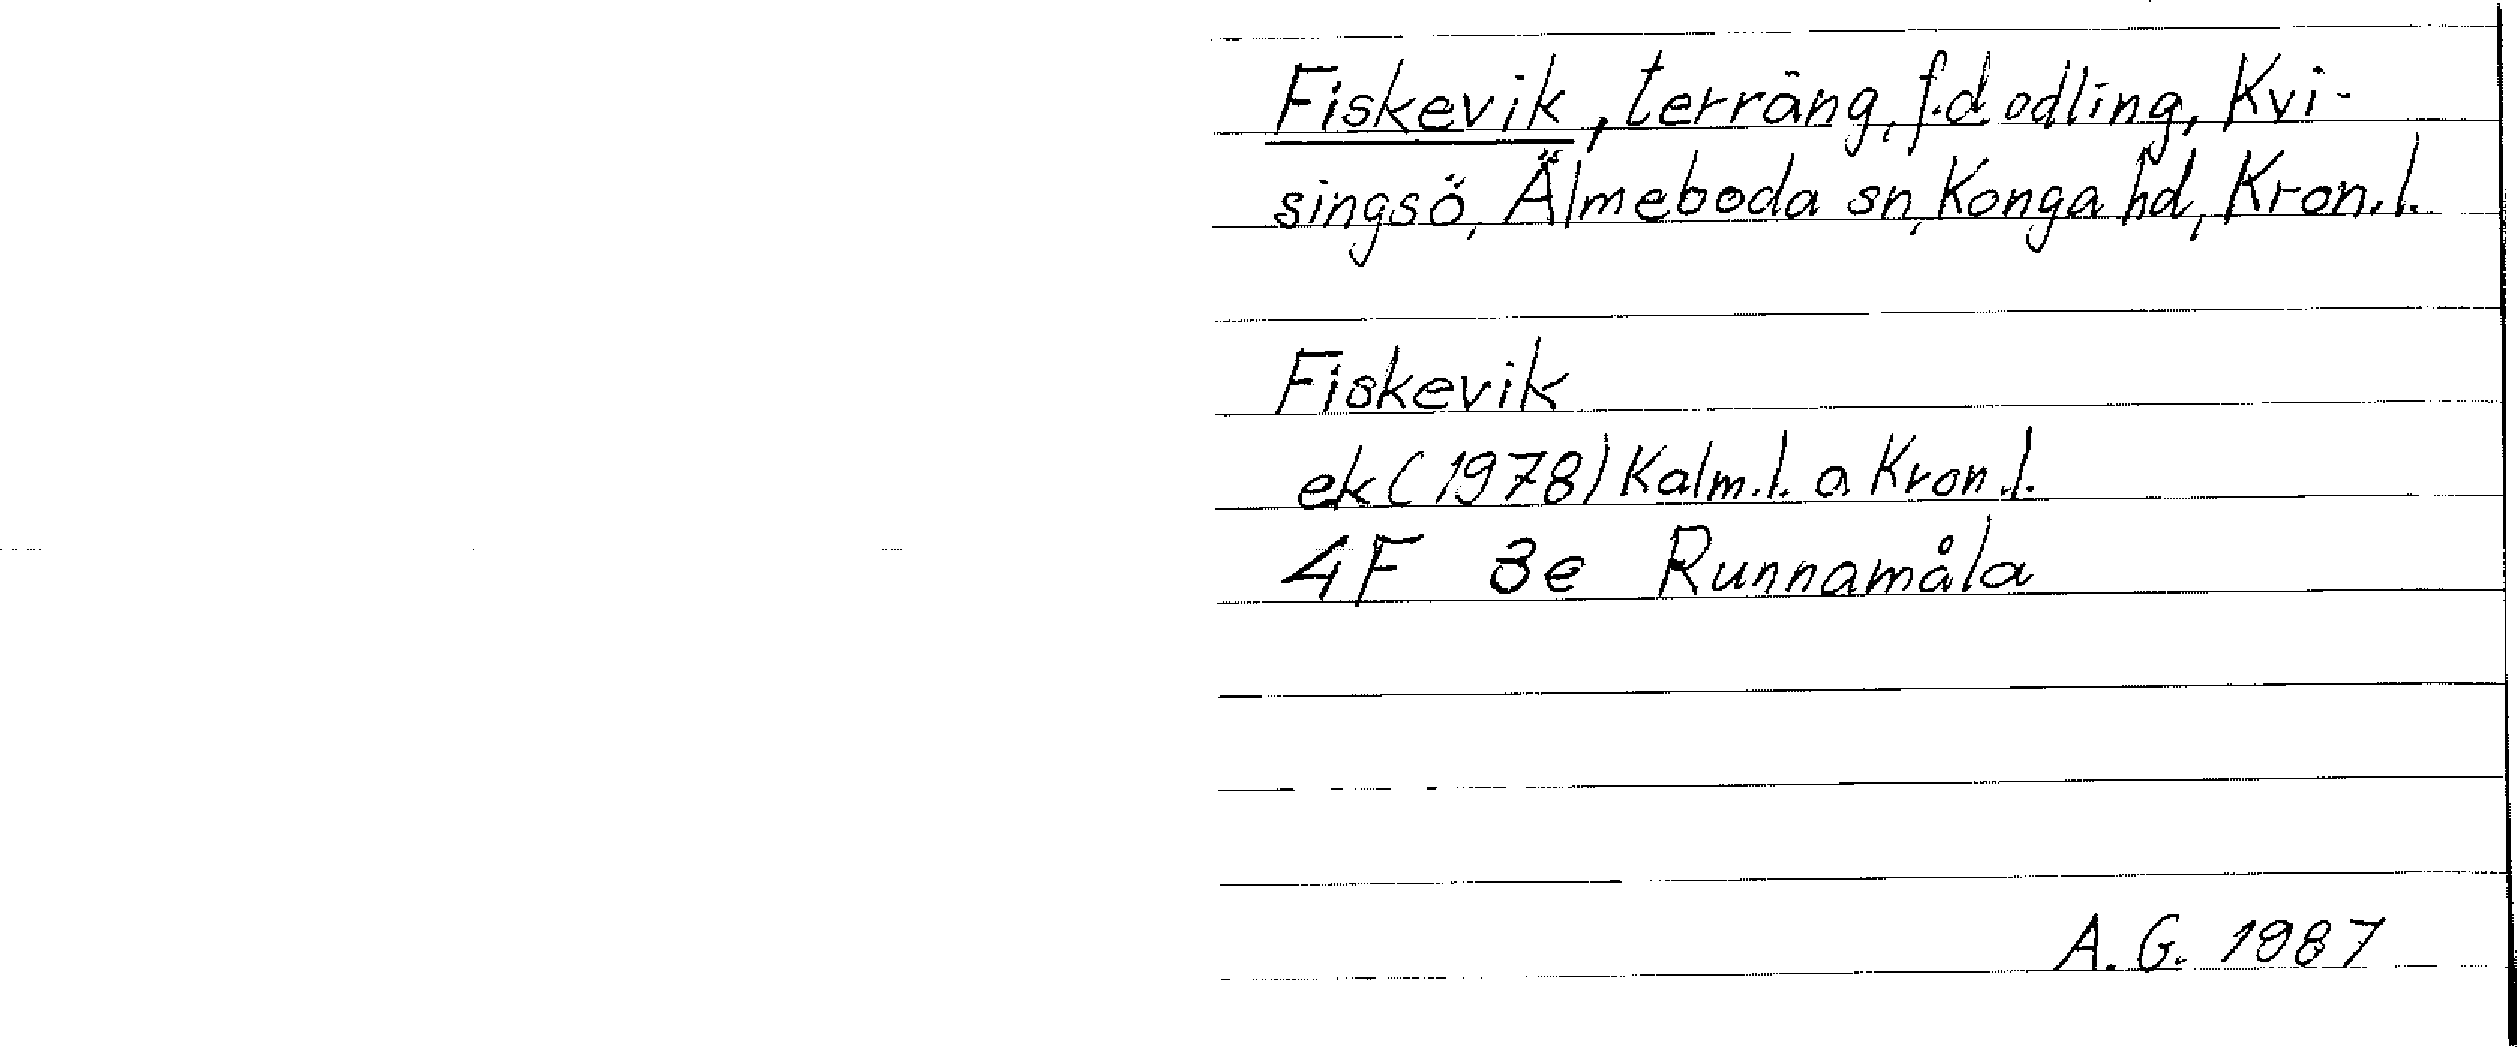 Fiskevik, terräng, f.d. odling, Kvi-
singsö, Älmeboda sn, Konga hd, Kron.l.
Fiskevik
ek (1978) Kalm.l. o Kron.l.
4F 3e Runnamåla
A.G. 1987